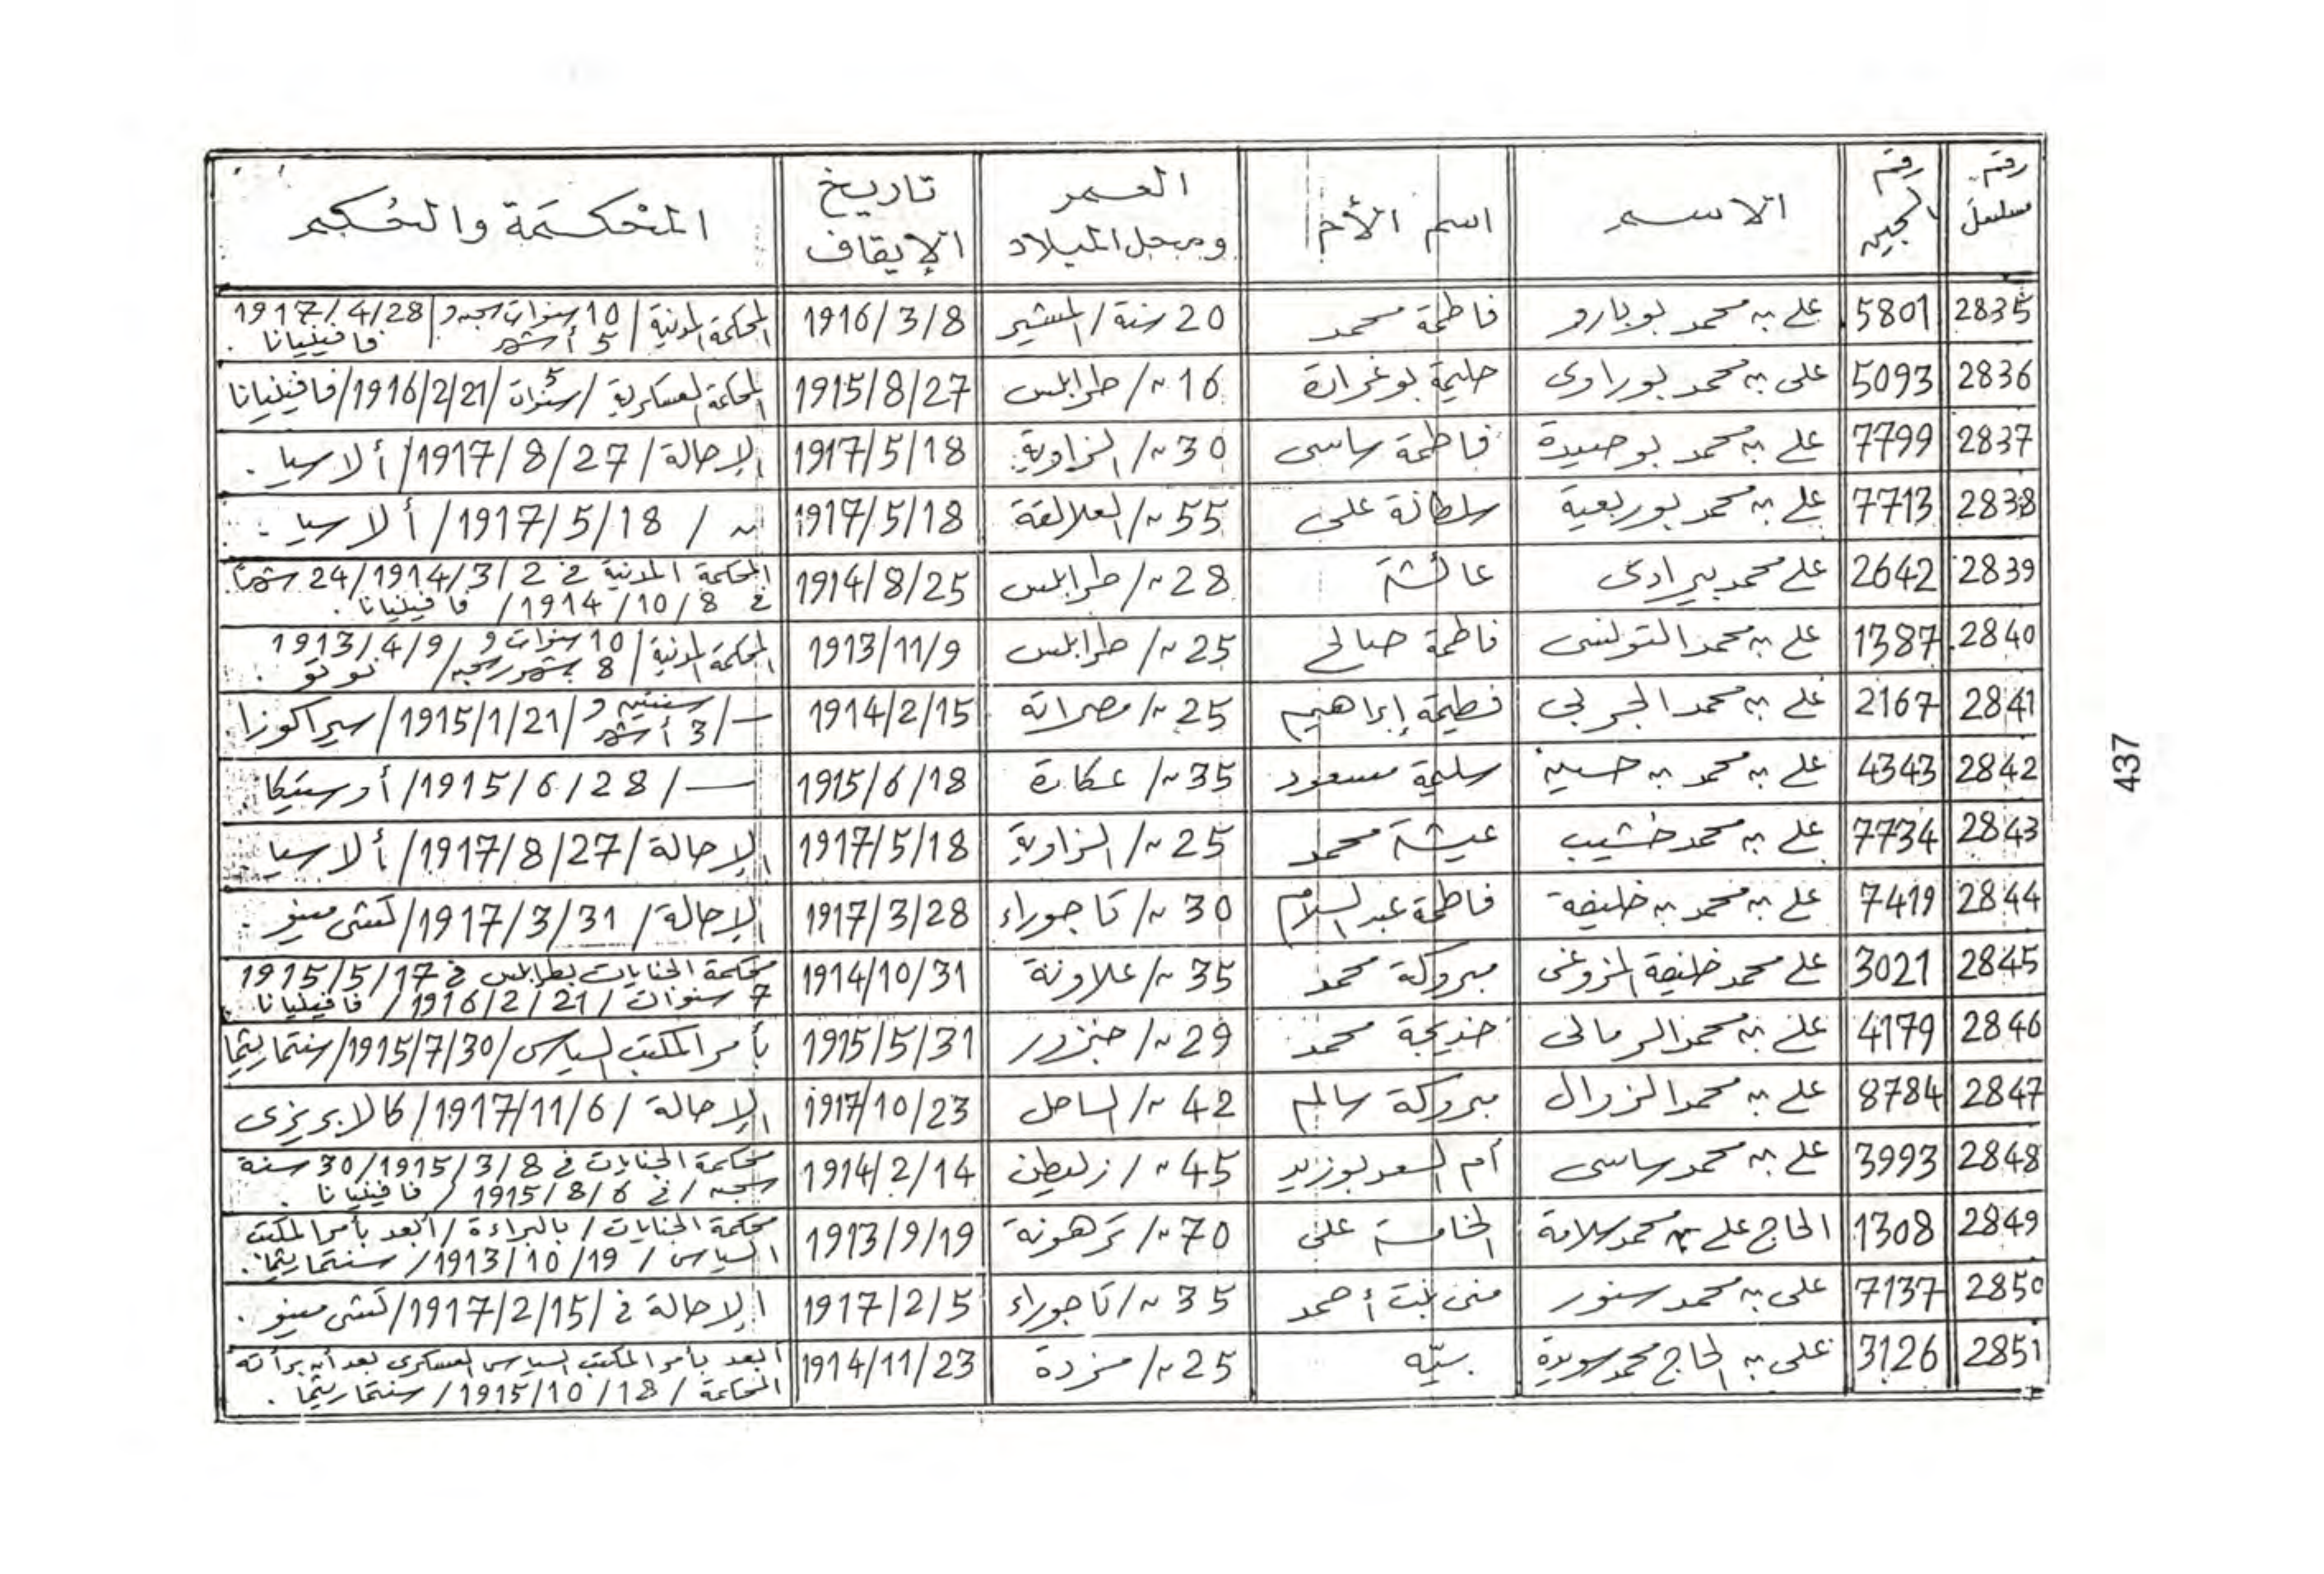 رقم مسلسل | رقم السجين | الاسم | اسم الأم | العمر ومحل الميلاد | تاريخ الإيقاف | المحكمة والحكم
2835 | 5801 | علي بن محمد بوبارو | فاطمة محمد | 20 سنة / المشير | 1916/3/8 | المحكمة المدنية / 10 سنوات سجن و 5 أشهر / 1917/4/28 فافينيانا .
2836 | 5093 | على بن محمد بوراوى | حليمة بوغرارة | 16 // / طرابلس | 1915/8/27 | المحكمة العسكرية / 5 سنوات / 1916/2/21 / فافينيانا
2837 | 7799 | علي بن محمد بوحميدة | فاطمة ساسى | 30 // / الزاوية | 1917/5/18 | الإحالة / 1917/8/27 / ألاسيا .
2838 | 7713 | علي بن محمد بوربعية | سلطانة على | 55 // / العلالقة | 1917/5/18 | // / 1917/5/18 / ألاسيا .
2839 | 2642 | علي محمد بيرادى | عائشة | 28 // / طرابلس | 1914/8/25 | المحكمة المدنية في 1914/3/2 / 24 شهرا في 1914/10/8 / فافينيانا .
2840 | 1387 | علي بن محمد التونسى | فاطمة صالح | 25 // / طرابلس | 1913/11/9 | المحكمة المدنية / 10 سنوات و 8 شهور سجن / 1913/4/9 نوتو .
2841 | 2167 | علي بن محمد الجربي | فطيمة إبراهيم | 25 // / مصراتة | 1914/2/15 | — / سنتين و 3 أشهر / 1915/1/21 / سيراكوزا .
2842 | 4343 | علي بن محمد بن حسين | سليمة مسعود | 35 // / عكارة | 1915/6/18 | — / 1915/6/28 / أوستيكا .
2843 | 7734 | علي بن محمد خشيب | عيشة محمد | 25 // / الزاوية | 1917/5/18 | الإحالة / 1917/8/27 / ألاسيا .
2844 | 7419 | علي بن محمد بن خليفة | فاطمة عبد السلام | 30 // / تاجوراء | 1917/3/28 | الإحالة / 1917/3/31 / كمبى مينو .
2845 | 3021 | علي محمد خليفة المزوغى | مبروكة محمد | 35 // / علاونة | 1914/10/31 | محكمة الجنايات بطرابلس في 1915/5/17 7 سنوات / 1916/2/21 / فافينيانا .
2846 | 4179 | علي بن محمد الرمالى | خديجة محمد | 29 // / جنزور | 1915/5/31 | بأمر المكتب السياسى / 1915/7/30 / سنتماريتما
2847 | 8784 | علي بن محمد الزروال | مبروكة سالم | 42 // / الساحل | 1917/10/23 | الإحالة / 1917/11/6 / كالابريزى
2848 | 3993 | علي بن محمد ساسى | أم السعد بوزيد | 45 // / زليطن | 1914/2/14 | محكمة الجنايات في 1915/3/8 / 30 سنة سجن / في 1915/8/6 / فافينيانا .
2849 | 1308 | الحاج علي بن محمد سلامة | الخامسة على | 70 // / ترهونة | 1913/9/19 | محكمة الجنايات / بالبراءة / أبعد بأمر المكتب السياسى / 1913/10/19 / سنتماريتما .
2850 | 7137 | على بن محمد سنور | منى بنت أحمد | 35 // / تاجوراء | 1917/2/5 | الإحالة في / 1917/2/15 / كمبى مينو .
2851 | 3126 | على بن الحاج محمد سويدة | سيّه | 25 // / مزدة | 1914/11/23 | أبعد بأمر المكتب السياسى العسكرى بعد أن برأته المحكمة / 1915/10/18 / سنتماريتما .
437